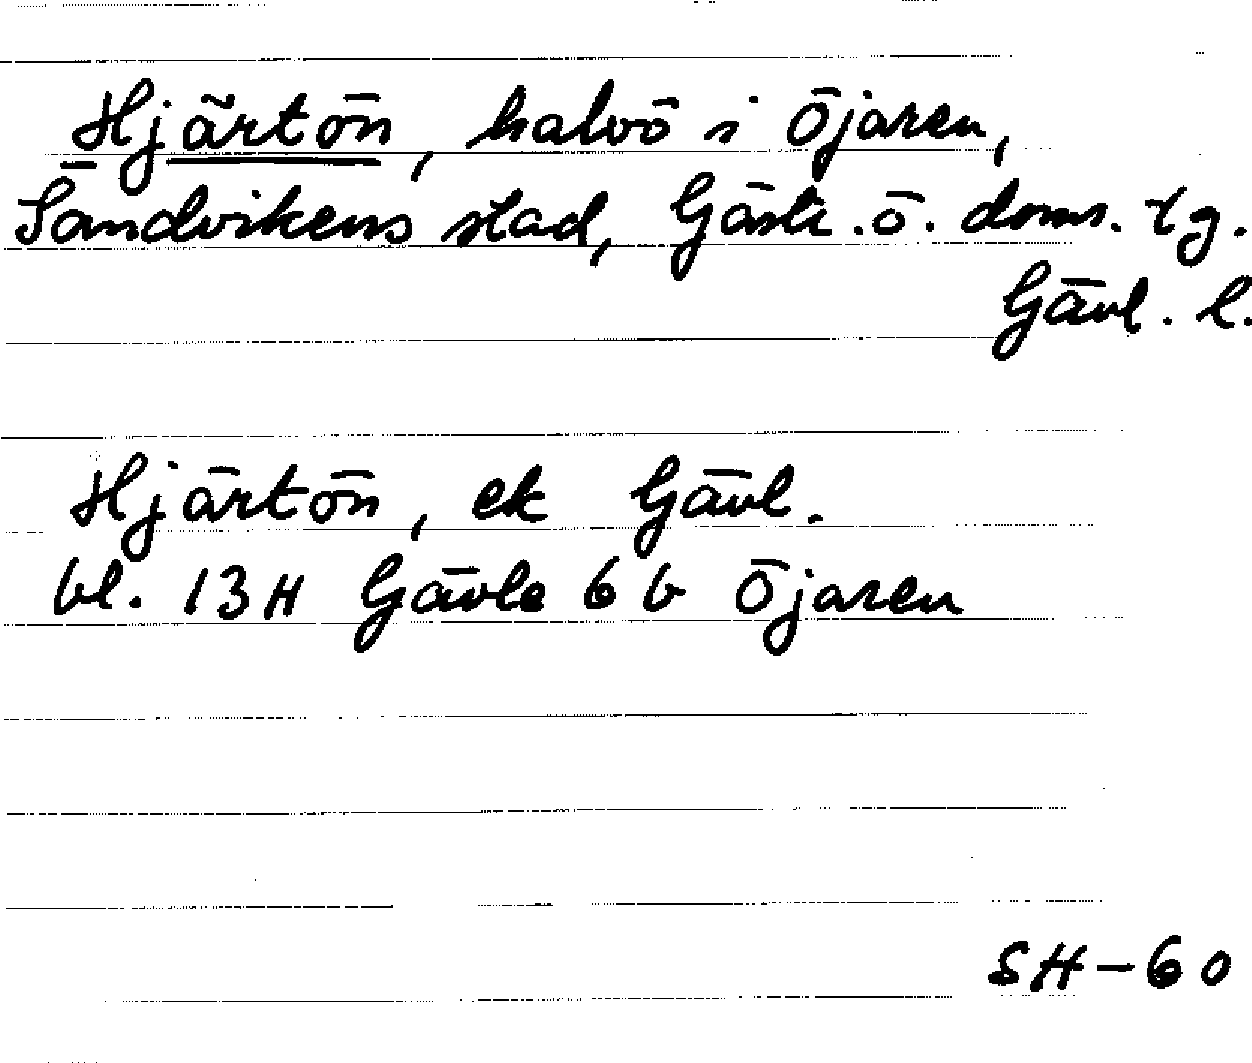 Hjärtön, halvö i Öjaren,
Sandvikens stad, Gästr. ö. doms. tg.
Gävl. l.
Hjärtön, ek Gävl.
bl. 13H Gävle 6 b Öjaren
SH-60